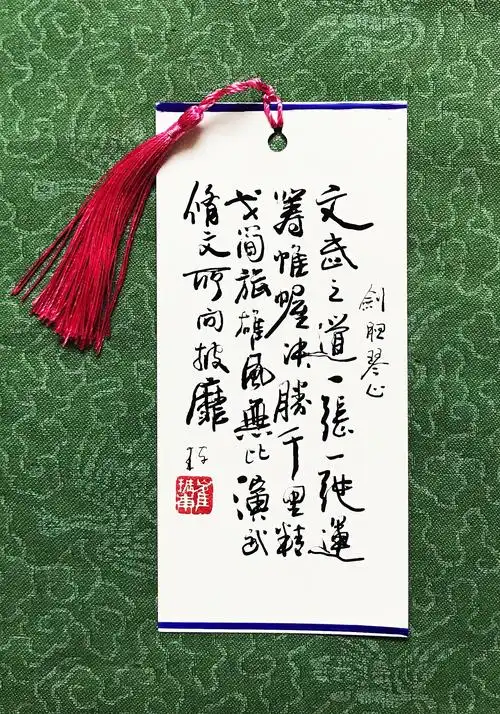 劍胆琴心
文武之道一張一弛運
籌帷幄决勝千里精
戈簡旅雄風無比演武
脩文所向披靡